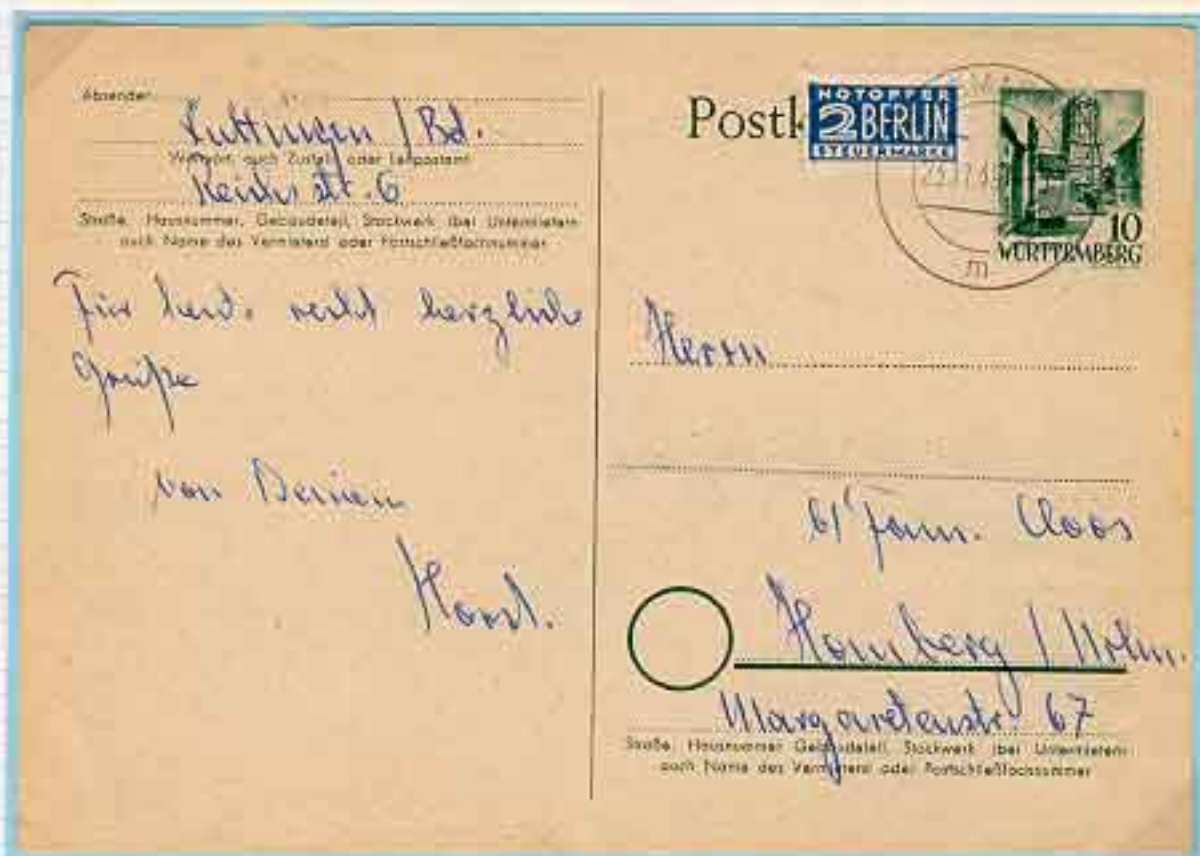 Absender:
Luttingen / Bd.
Wohnort, auch Zustell- oder Leitpostamt
Reichsstr. 6
Straße, Hausnummer, Gebäudeteil, Stockwerk (bei Untermietern
auch Name des Vermieters) oder Postschließfachnummer
Für heut. recht herzliche
Grüße
von Deinem
Horst.
Postk
NOTOPFER
2 BERLIN
STEUERMARKE
m
10
WÜRTTEMBERG
Herrn
b/ Fam. Cloos
Homberg /
Margaretenstr. 67
Straße, Hausnummer, Gebäudeteil, Stockwerk (bei Untermietern
auch Name des Vermieters) oder Postschließfachnummer